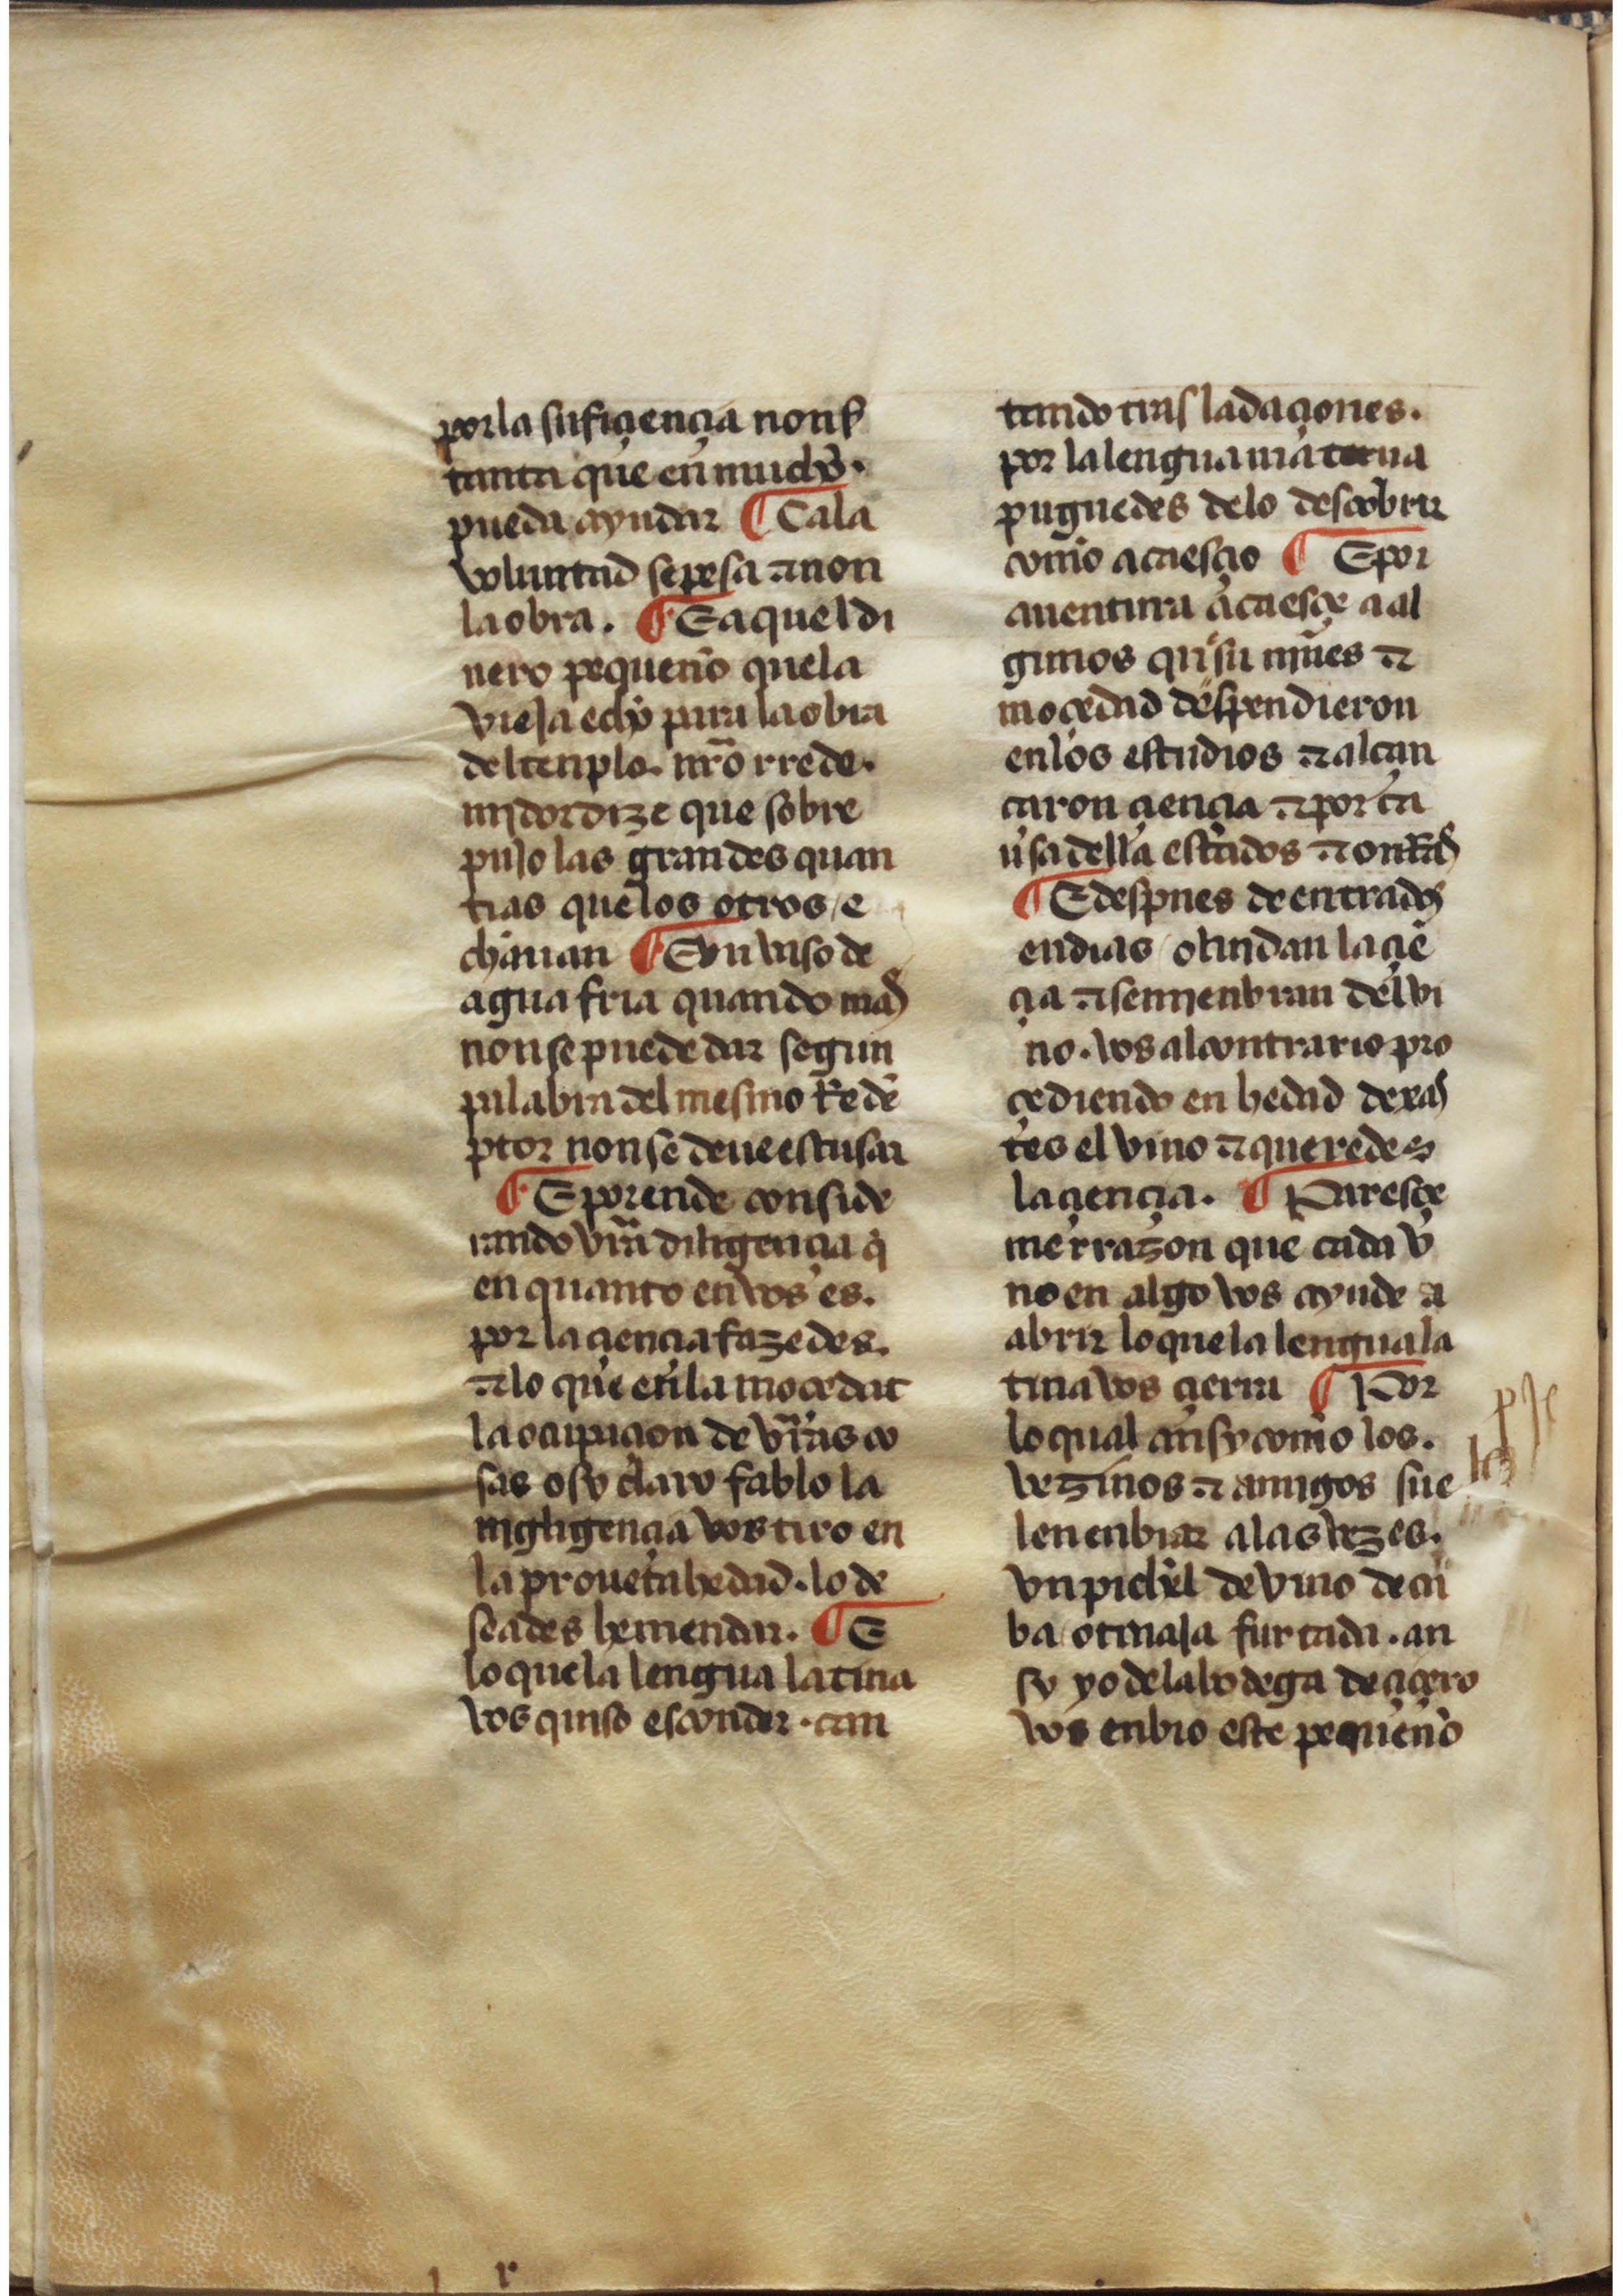 por la sufiçençia non sea
tanta que en mucho.
pueda ayudar ¶ Cala
voluntad se pesa ⁊ non
la obra. ¶ E aquel di
nero pequeño que la
vieja echo para la obra
del tenplo. nr̃o rrede.
mjdor dize que sobre
pujo las grandes quan
tias que los otros / e
chauan ¶ E vn vaso de
agua fria quando mas
non se puede dar segun
palabra del mesmo Redẽ
ptor non se deue escusar
¶ E por ende conside
rando vr̃a diligençia q̃
en quanto en vos es.
por la çiençia fazedes.
⁊ lo que en la moçedat
la ocupaçion de vr̃as co
sas o sy claro fablo la
nigligençia vos tiro en
la prouecta hedad. lo de
seades hemendar. ¶ E
lo que la lengua latina
vos quiso esconder. can
tando tras ladaçiones.
por la lengua materna
pugnedes delo descobrir
commo acaesçio ¶ E por
auentura acaesçe a al
gunos que su niñes ⁊
moçedad despendieron
en los estudios ⁊ alcan
çaron çiençia ⁊ por ca
usa della estados ⁊ onrras
¶ E despues de entrados
en dias / oluidan la çiẽ
çia ⁊ se mienbran del vi
no. vos al contrario pro
çediendo en hedad dexas
tes el vino ⁊ queredes
la çiençia. ¶ Paresçe
me rrazon que cada v
no en algo vos ayude a
abrir lo que la lengua la
tina vos çierra ¶ Por
lo qual ansy commo los.
vezinos ⁊ amigos sue
len enbiar a las vezes.
vn pichel de vino de cu
ba / o tinaja furtada. an
sy yo de la bodega de çiçero
vos enbio este pequeño